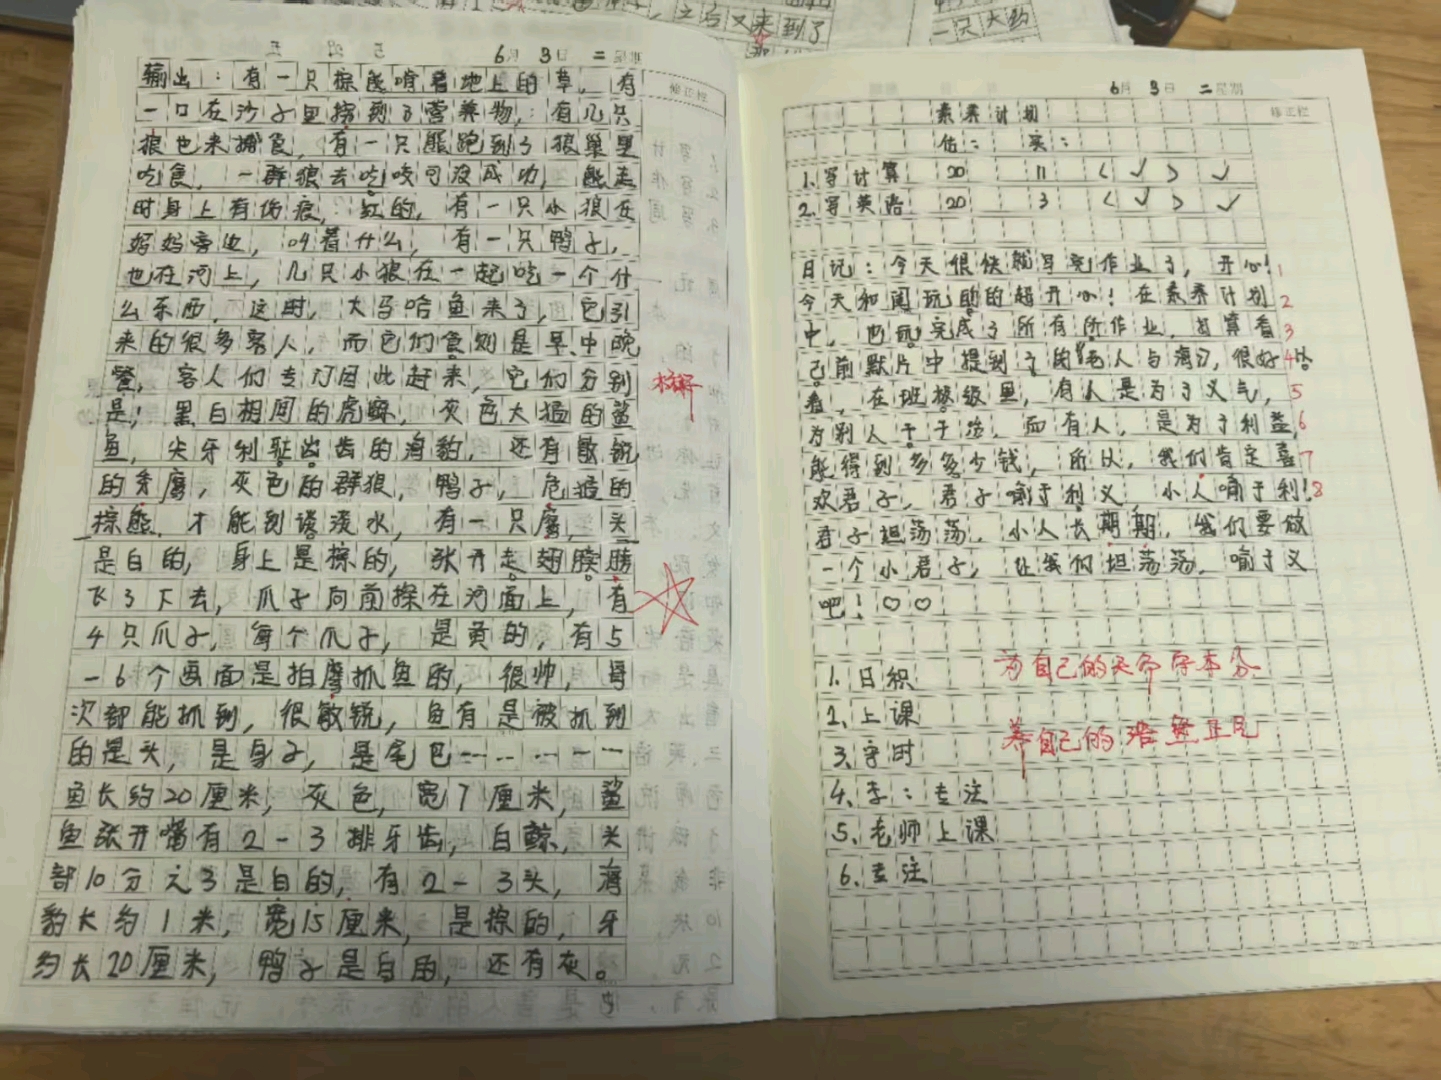 6月3日 二星期
输出：有一只棕熊啃着地上的草，有
一只在沙子里擦到了营养物，有几只
狼也来捕食，有一只熊跑到了狼巢里
吃食，一群狼去吃咬可没成功，熊走
时身上有伤痕，红的，有一只小狼在
妈妈旁边，叫着什么，有一只鸭子，
也在河上，几只小狼在一起吃一个什
么东西，这时，大马哈鱼来了，它引
来的很多客人，而它们食则是早、中晚
餐，客人们专门因此赶来，它们分别
是：黑白相间的虎鲸，灰色大猛的鲨
鱼，尖牙利齿的海豹，还有敏锐
的秃鹰，灰色的群狼，鸭子，危猛的
棕熊，才能到淡水，有一只鹰，头
是白的，身上是棕的，张开走翅膀
飞了下去，爪子向前探在河面上，有
4只爪子，每个爪子，是黄的，有5
-6个画面是拍鹰抓鱼的，很帅，每
次都能抓到，很敏锐，鱼有是被抓到
的是头，是身子，是尾巴
鱼长约20厘米，灰色，宽7厘米，鲨
鱼张开嘴有2-3排牙齿，白鲸，头
部10分之3是白的，有2-3头，海
豹长约1米，宽15厘米，是棕的，牙
约长20厘米，鸭子是白的，还有灰。
棕熊
修正栏
6月3日 二星期
修正栏
素养计划
估： 实：
1.写计算 20 11 < ✓ > ✓
2.写英语 20 3 < ✓ > ✓
日记：今天很快就写完作业了，开心！ 1
今天和阅玩的超开心！在素养计划 2
中，也玩完成了所有所作业，打算看 3
己前默片中提到了的《 人与海》，很好 4
看，在班级里，有人是为了义气， 5
为别人干干活，而有人，是为了利益， 6
能得到多多少钱，所以，我们肯定喜 7
欢君子，君子喻于利义，小人喻于利！ 8
君子坦荡荡，小人长期期，我们要做
一个小君子，让我们坦荡荡，喻于义
吧！♡♡
1.日积
为自己的天命守本分
2.上课
养自己的浩然正气
3.守时
4.李：专注
5.老师上课
6.专注